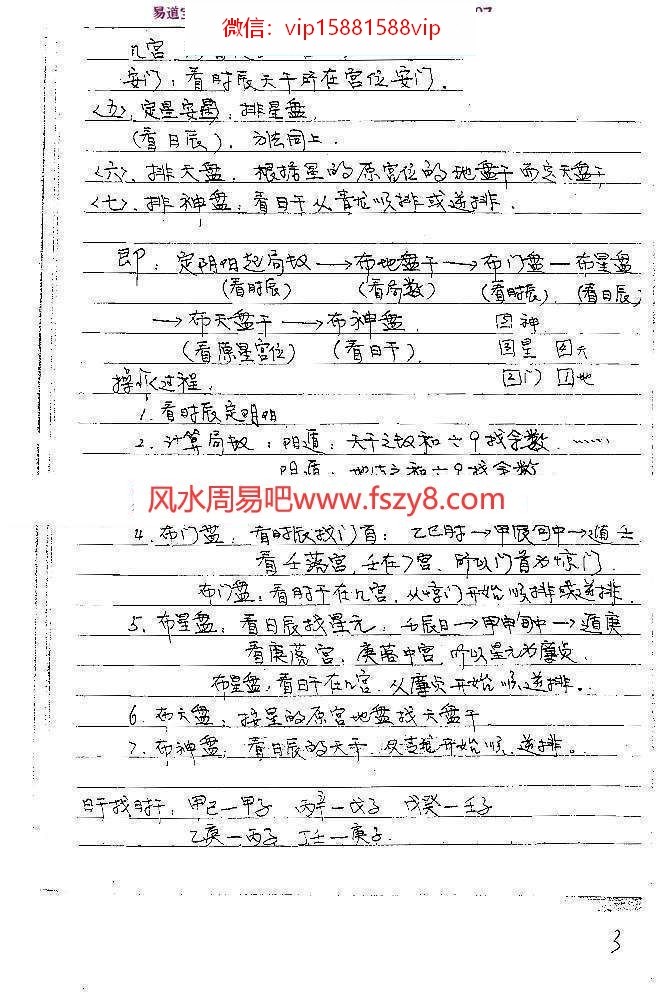 易道
微信：vip15881588vip
九宫
安门：看时辰天干所在宫位安门。
〈五〉、定星安 排星盘
(看日辰)，方法同上。
〈六〉、排天盘，根据星的原宫位的地盘干而定天盘干
〈七〉、排神盘：看日干从青龙顺排或逆排．
即：定阴阳起局数→布地盘干→布门盘—布星盘
(看时辰) (看局数) (看时辰) (看日辰)
→布天盘干→布神盘 神
(看原星宫位) (看日干) 星 天
操作过程： 门 地
1. 看时辰定阴阳
2. 计算局数：阳遁：天干之数和÷9找余数……
阴遁：地支之和÷9找余数
风水周易吧www.fszy8.com
4. 布门盘：看时辰找门首：乙巳时→甲辰旬中→遁壬
看壬落宫，壬在7宫，所以门首为惊门
布门盘：看时干在几宫，从惊门开始顺排或逆排．
5. 布星盘：看日辰找星元，壬辰日→甲申旬中→遁庚
看庚落宫，庚落中宫，所以星元为廉贞
布星盘，看日干在几宫，从廉贞开始顺、逆排。
6. 布天盘：按星的原宫地盘找天盘干
7. 布神盘：看日辰的天干，从青龙开始顺、逆排。
日干找时干：甲己—甲子 丙辛—戊子 戊癸—壬子
乙庚—丙子 丁壬—庚子．
3